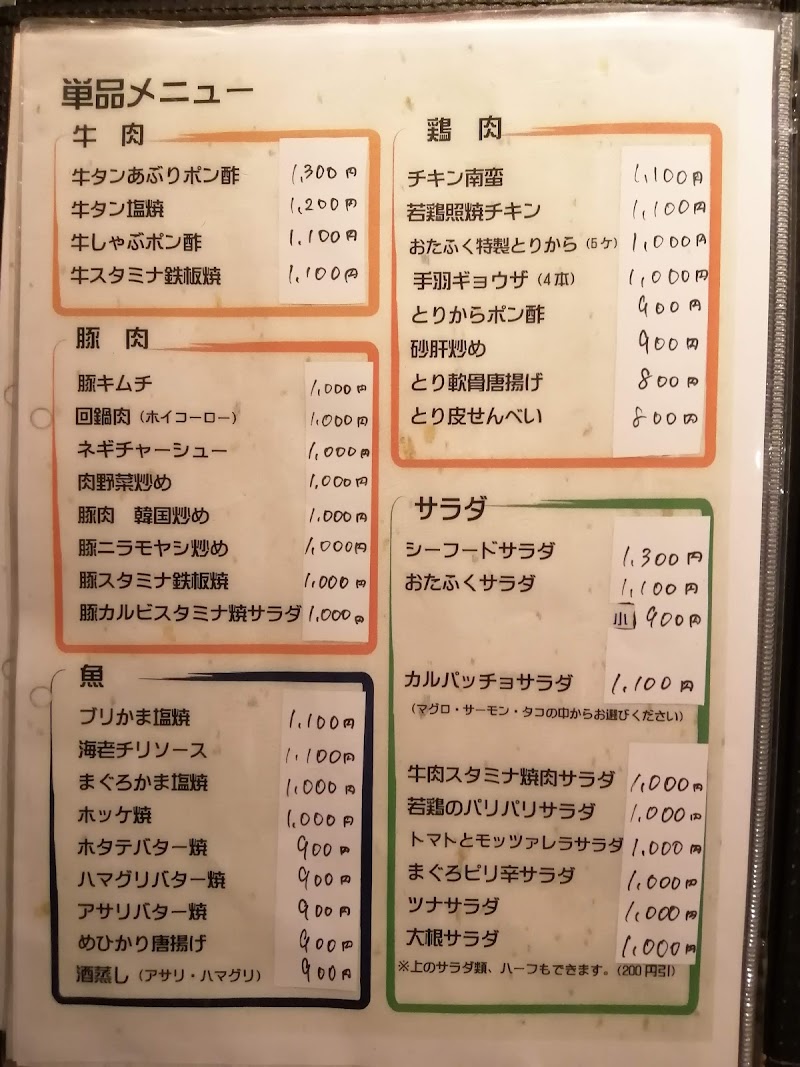 単品メニュー
牛 肉
牛タンあぶりポン酢 1,300円
牛タン塩焼 1,200円
牛しゃぶポン酢 1,100円
牛スタミナ鉄板焼 1,100円
豚 肉
豚キムチ 1,000円
回鍋肉(ホイコーロー) 1,000円
ネギチャーシュー 1,000円
肉野菜炒め 1,000円
豚肉 韓国炒め 1,000円
豚ニラモヤシ炒め 1,000円
豚スタミナ鉄板焼 1,000円
豚カルビスタミナ焼サラダ 1,000円
魚
ブリかま塩焼 1,100円
海老チリソース 1,100円
まぐろかま塩焼 1,000円
ホッケ焼 1,000円
ホタテバター焼 900円
ハマグリバター焼 900円
アサリバター焼 900円
めひかり唐揚げ 900円
酒蒸し(アサリ・ハマグリ) 900円
鶏 肉
チキン南蛮 1,100円
若鶏照焼チキン 1,100円
おたふく特製とりから(5ケ) 1,000円
手羽ギョウザ(4本) 1,000円
とりからポン酢 900円
砂肝炒め 900円
とり軟骨唐揚げ 800円
とり皮せんべい 800円
サラダ
シーフードサラダ 1,300円
おたふくサラダ 1,100円
小 900円
カルパッチョサラダ 1,100円
(マグロ・サーモン・タコの中からお選びください)
牛肉スタミナ焼肉サラダ 1,000円
若鶏のパリパリサラダ 1,000円
トマトとモッツァレラサラダ 1,000円
まぐろピリ辛サラダ 1,000円
ツナサラダ 1,000円
大根サラダ 1,000円
※上のサラダ類、ハーフもできます。(200円引)